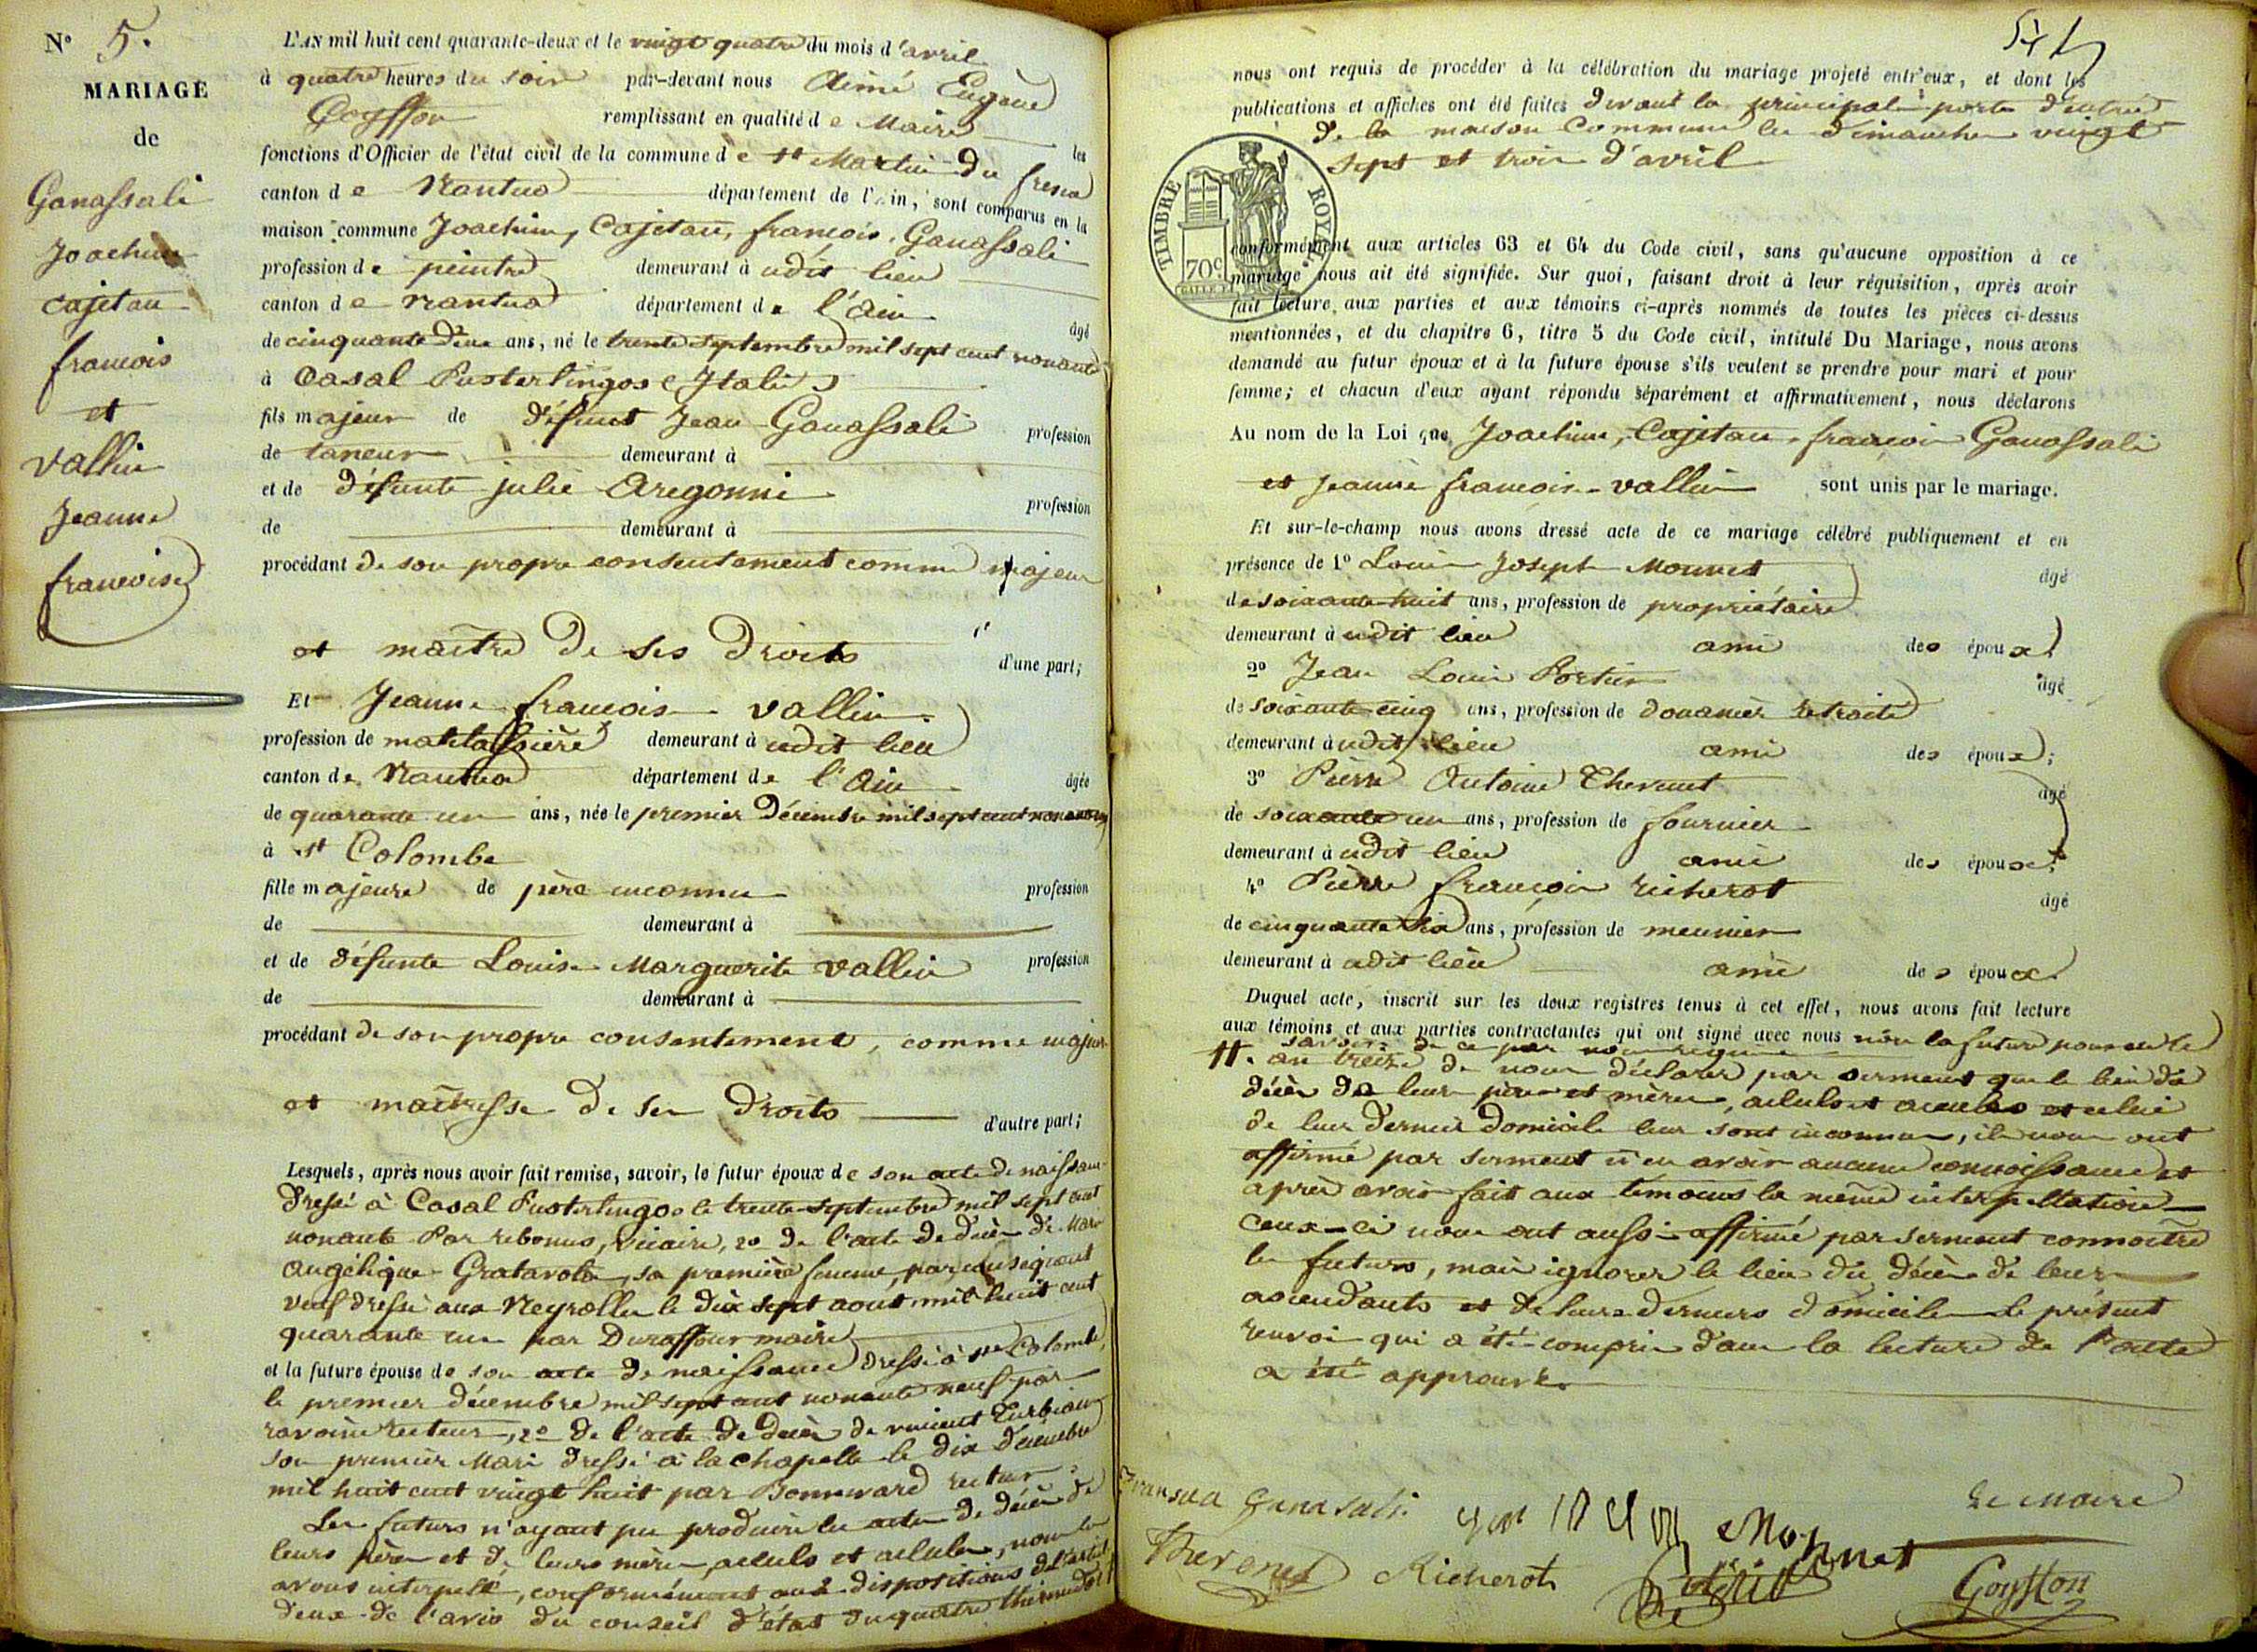 N° 5.
MARIAGE
de
Ganassali
Joachim
Cajetan
francois
et
Vallin
Jeanne
francoise
L'AN mil huit cent quarante-deux et le vingt quatre du mois d'avril
à quatre heures du soir par-devant nous Aimé Eugène
Goyffon remplissant en qualité de Maire les
fonctions d'Officier de l'état civil de la commune de st Martin du fresne
canton de Nantua département de l'Ain, sont comparus en la
maison commune Joachim, Cajetan, francois, Ganassali
profession de peintre demeurant à udit lieu
canton de Nantua département de l'Ain âgé
de cinquante deux ans, né le trente septembre mil sept cent nonante
à Casal Pusterlingos (Italie)
fils majeur de défunt Jean Ganassali profession
de taneur demeurant à
et de défunte julie Aregonni profession
de demeurant à
procédant de son propre consentement comme majeur
et maître de ses droits d'une part;
Et Jeanne francoise Vallin
profession de matelassière demeurant à udit lieu
canton de Nantua département de l'Ain âgée
de quarante un ans, née le premier Décembre mil sept cent nonante
à st Colombe
fille majeure de père inconnu profession
de demeurant à
et de défunte Louise Marguerite Vallin profession
de demeurant à
procédant de son propre consentement, comme majeure
et maîtresse de ses droits d'autre part;
Lesquels, après nous avoir fait remise, savoir, le futur époux de son acte de naissance
dressé à Casal Pusterlingos le trente septembre mil sept cent
nonante Par rebonus, vicaire, 2° de l'acte de décès de Marie
angélique Gratarola, sa première femme, par conséquent
veuf dressé aux Neyrolles le dix sept août mil huit cent
quarante un par Duraffour maire
et la future épouse de son acte de naissance dressé à ste Colombe,
le premier décembre mil sept cent nonante neuf par
ravoire recteur, 2° de l'acte de décès de vincent Turbiau
son premier Mari dressé à la Chapelle le dix décembre
mil huit cent vingt huit par Bonnward recteur.
Les futurs n'ayant pu produire les actes de décès de
leurs père et de leurs mère, aieuls et aieules, nous les
avons interpellé, conformément aux dispositions de l'article
deux de l'avis du conseil d'état du quatre thermidor
nous ont requis de procéder à la célébration du mariage projeté entr'eux, et dont les
publications et affiches ont été faites devant la principale porte d'entrée
de la maison Commune les dimanches vingt
sept et trois d'avril
TIMBRE ROYAL
70c
conformément aux articles 63 et 64 du Code civil, sans qu'aucune opposition à ce
mariage nous ait été signifiée. Sur quoi, faisant droit à leur réquisition, après avoir
fait lecture aux parties et aux témoins ci-après nommés de toutes les pièces ci-dessus
mentionnées, et du chapitre 6, titre 5 du Code civil, intitulé Du Mariage, nous avons
demandé au futur époux et à la future épouse s'ils veulent se prendre pour mari et pour
femme; et chacun d'eux ayant répondu séparément et affirmativement, nous déclarons
Au nom de la Loi que Joachim, Cajetan, francois Ganassali
et Jeanne francoise vallin sont unis par le mariage.
Et sur-le-champ nous avons dressé acte de ce mariage célébré publiquement et en
présence de 1° Louis Joseph Monnet âgé
de soixante huit ans, profession de propriétaire
demeurant à udit lieu ami des époux;
2° Jean Louis Portier âgé
de soixante cinq ans, profession de douanier retraité
demeurant à udit lieu ami des époux;
3° Pierre Antoine Thevenet âgé
de soixante un ans, profession de fournier
demeurant à udit lieu ami des époux;
4° Pierre françois richerot âgé
de cinquante six ans, profession de meunier
demeurant à udit lieu ami des époux.
Duquel acte, inscrit sur les deux registres tenus à cet effet, nous avons fait lecture
aux témoins et aux parties contractantes qui ont signé avec nous non la future pour ne le
savoir de ce par nous requise
an treize de nous déclarer par serment que le lieu du
décès de leurs père et mère, aieuls et aieules et celui
de leur dernier domicile leur sont inconnus, ils nous ont
affirmé par serment n'en avoir aucune connoissance et
après avoir fait aux témoins la même interpellation
ceux-ci nous ont aussi affirmé par serment connoître
les futurs, mais ignorer le lieu du décès de leurs
ascendants et de leurs derniers domicile le présent
renvoi qui a été compris dans la lecture de l'acte
a été approuvé.
Fransua Ganasali Monnet Le Maire
Thevenet Richerot Portier Goyffon